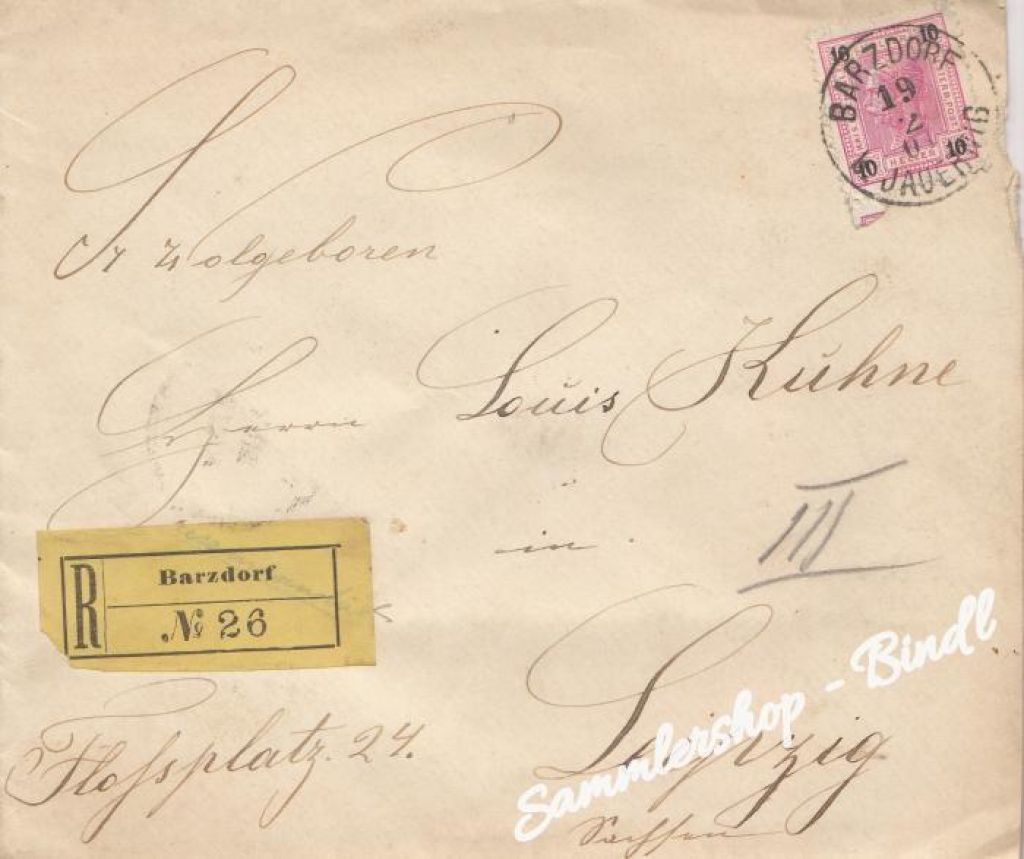 BARZDORF
19
2
0
JAUERNIG
10 10
10 10
HELLER
Sr Wolgeboren
Herrn Louis Kuhne
in
III
R Barzdorf
№ 26
Leipzig
Flossplatz. 24.
Sachsen
Sammlershop - Bindl